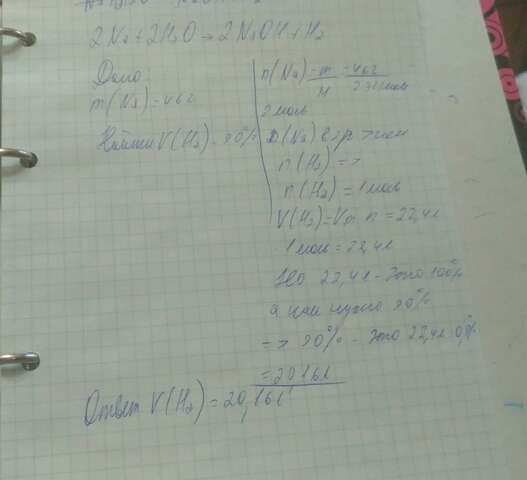 2Na + 2H₂O → 2NaOH + H₂
Дано
m(Na) = 46г
Найти V(H₂) - 90%
n(Na) = m/M = 46г/23г/моль
2 моль
n(Na) в 2 р > чем
n(H₂) =>
n(H₂) = 1 моль
V(H₂) = Vm n = 22,4л
1 моль = 22,4л
Но 22,4л - это 100%
а нам нужно 90%
=> 90% - это 22,4л 0,9
= 20,16л
Ответ V(H₂) = 20,16л